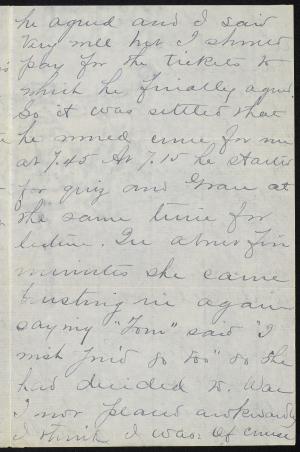 he agreed and I said
Very well but I should
pay for the tickets to
which he finally agreed
So it was settled that
he would come for me
at 7.45 At 7.15 he started
for quiz and Grace at
the same time for
lecture. In about five
minutes she came
busting in again
saying "Tom" said "I
wish you'd go too" so she
had decided to. Was
I not placed awkwardly
I think I was. Of course